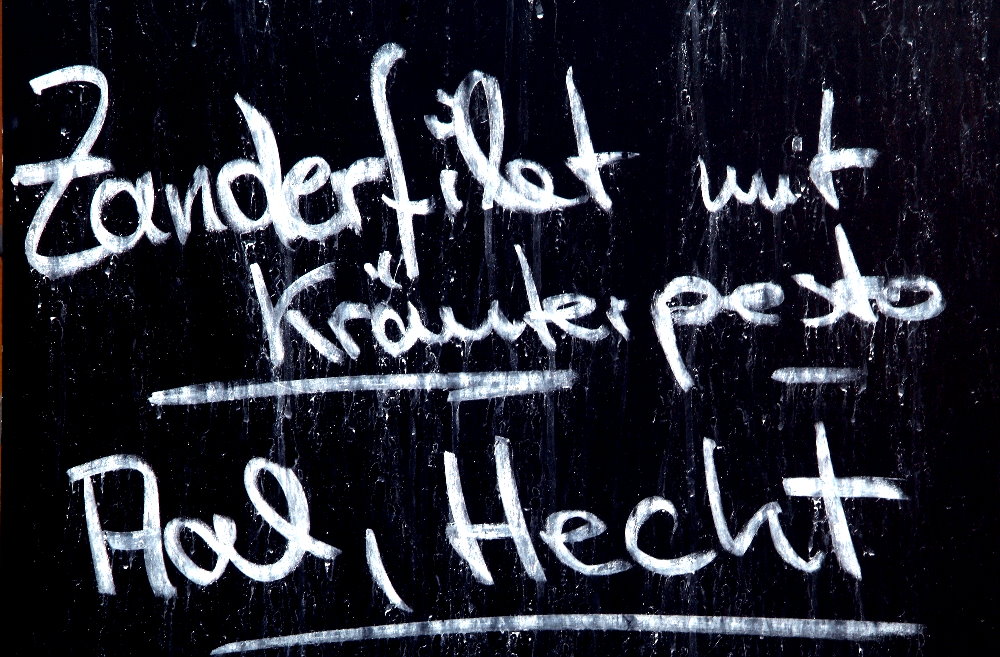 Zanderfilet mit
Kräuterpesto
Aal, Hecht